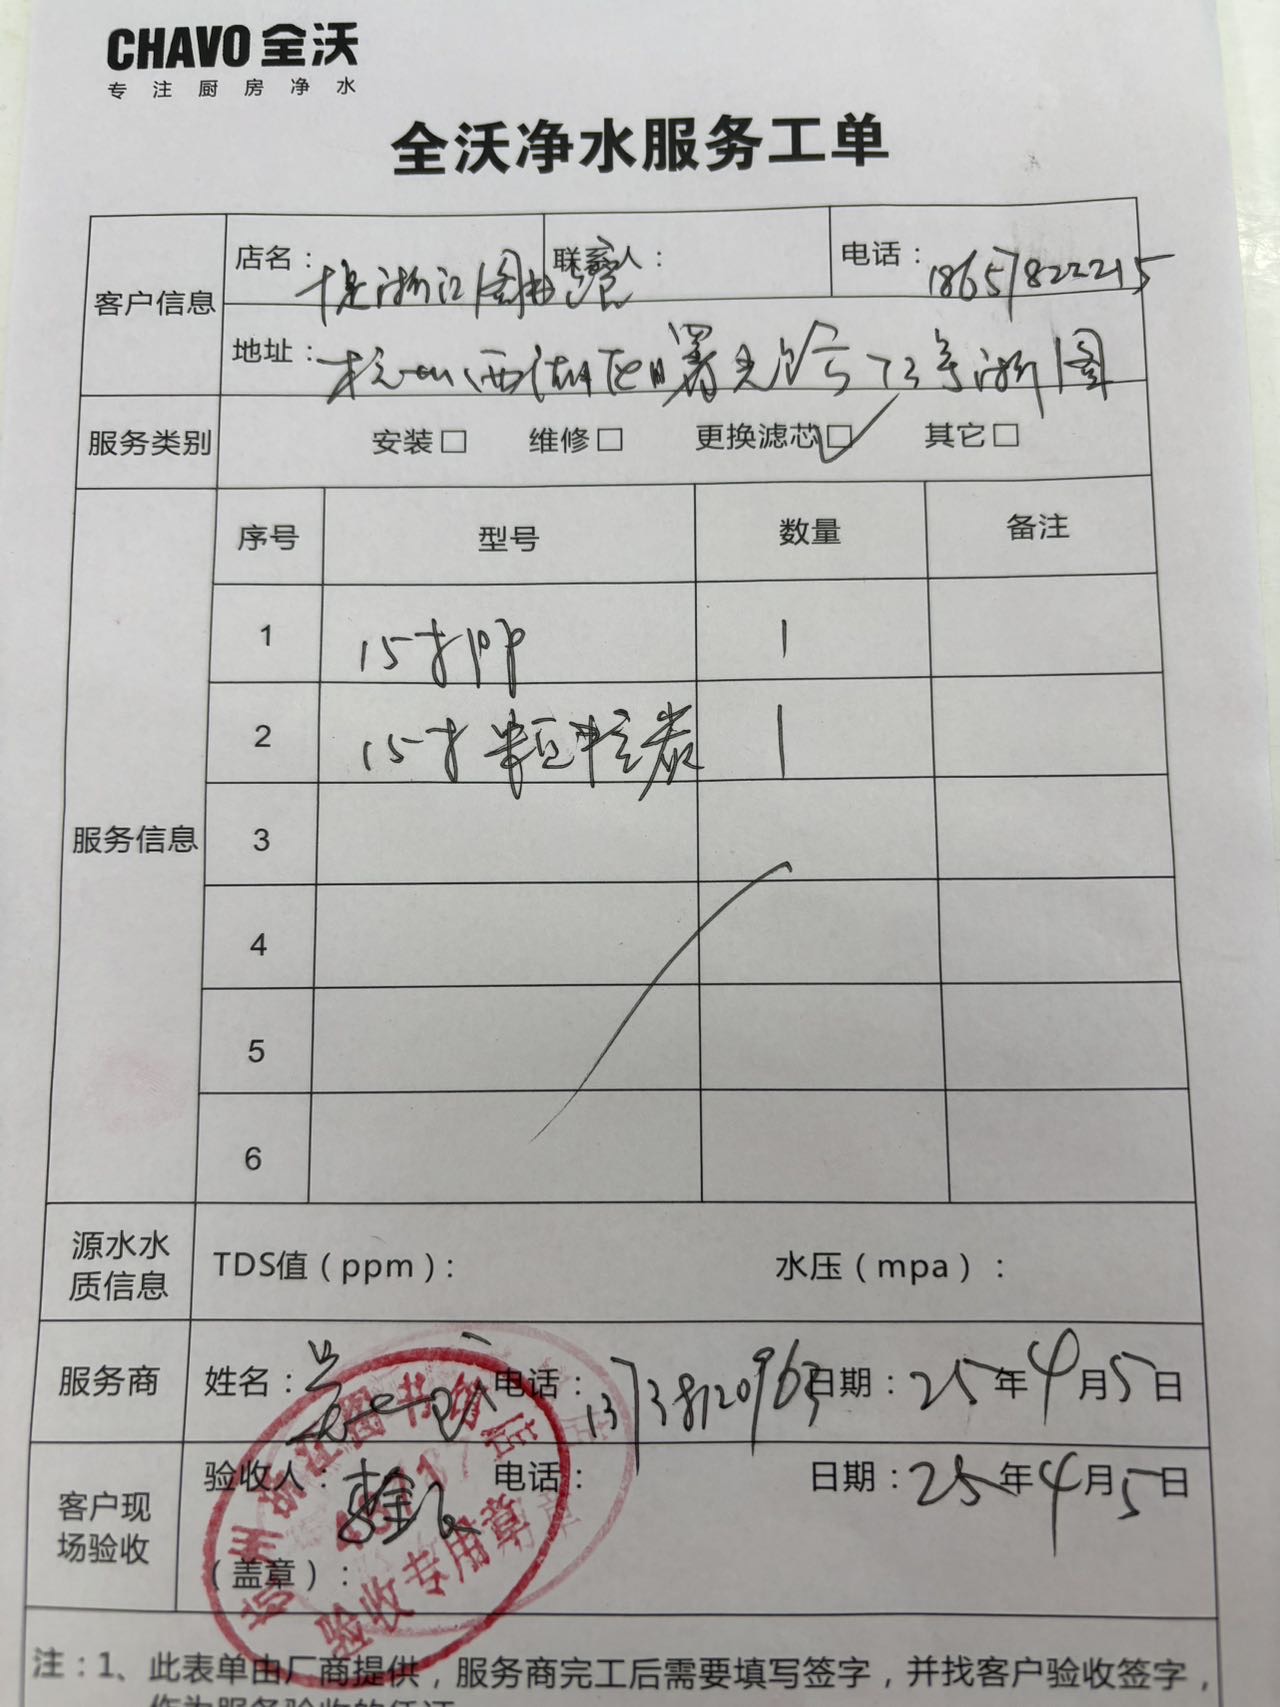 CHAVO 全沃
专注厨房净水
全沃净水服务工单
客户信息
店名： 浙江图书馆 联系人： 电话：18657822215
地址： 杭州西湖区曙光路73号浙图
服务类别 安装□ 维修□ 更换滤芯□✓ 其它□
服务信息
序号 型号 数量 备注
1 15寸PP 1
2 15寸颗粒炭 1
3
4
5
6
源水水质信息 TDS值（ppm）： 水压（mpa）：
服务商 姓名： 电话： 日期：25年4月5日
客户现场验收 验收人： 电话： 日期：25年4月5日
（盖章）：
杭州浙江图书馆店
验收专用章
注：1、此表单由厂商提供，服务商完工后需要填写签字，并找客户验收签字，
作为服务验收的凭证